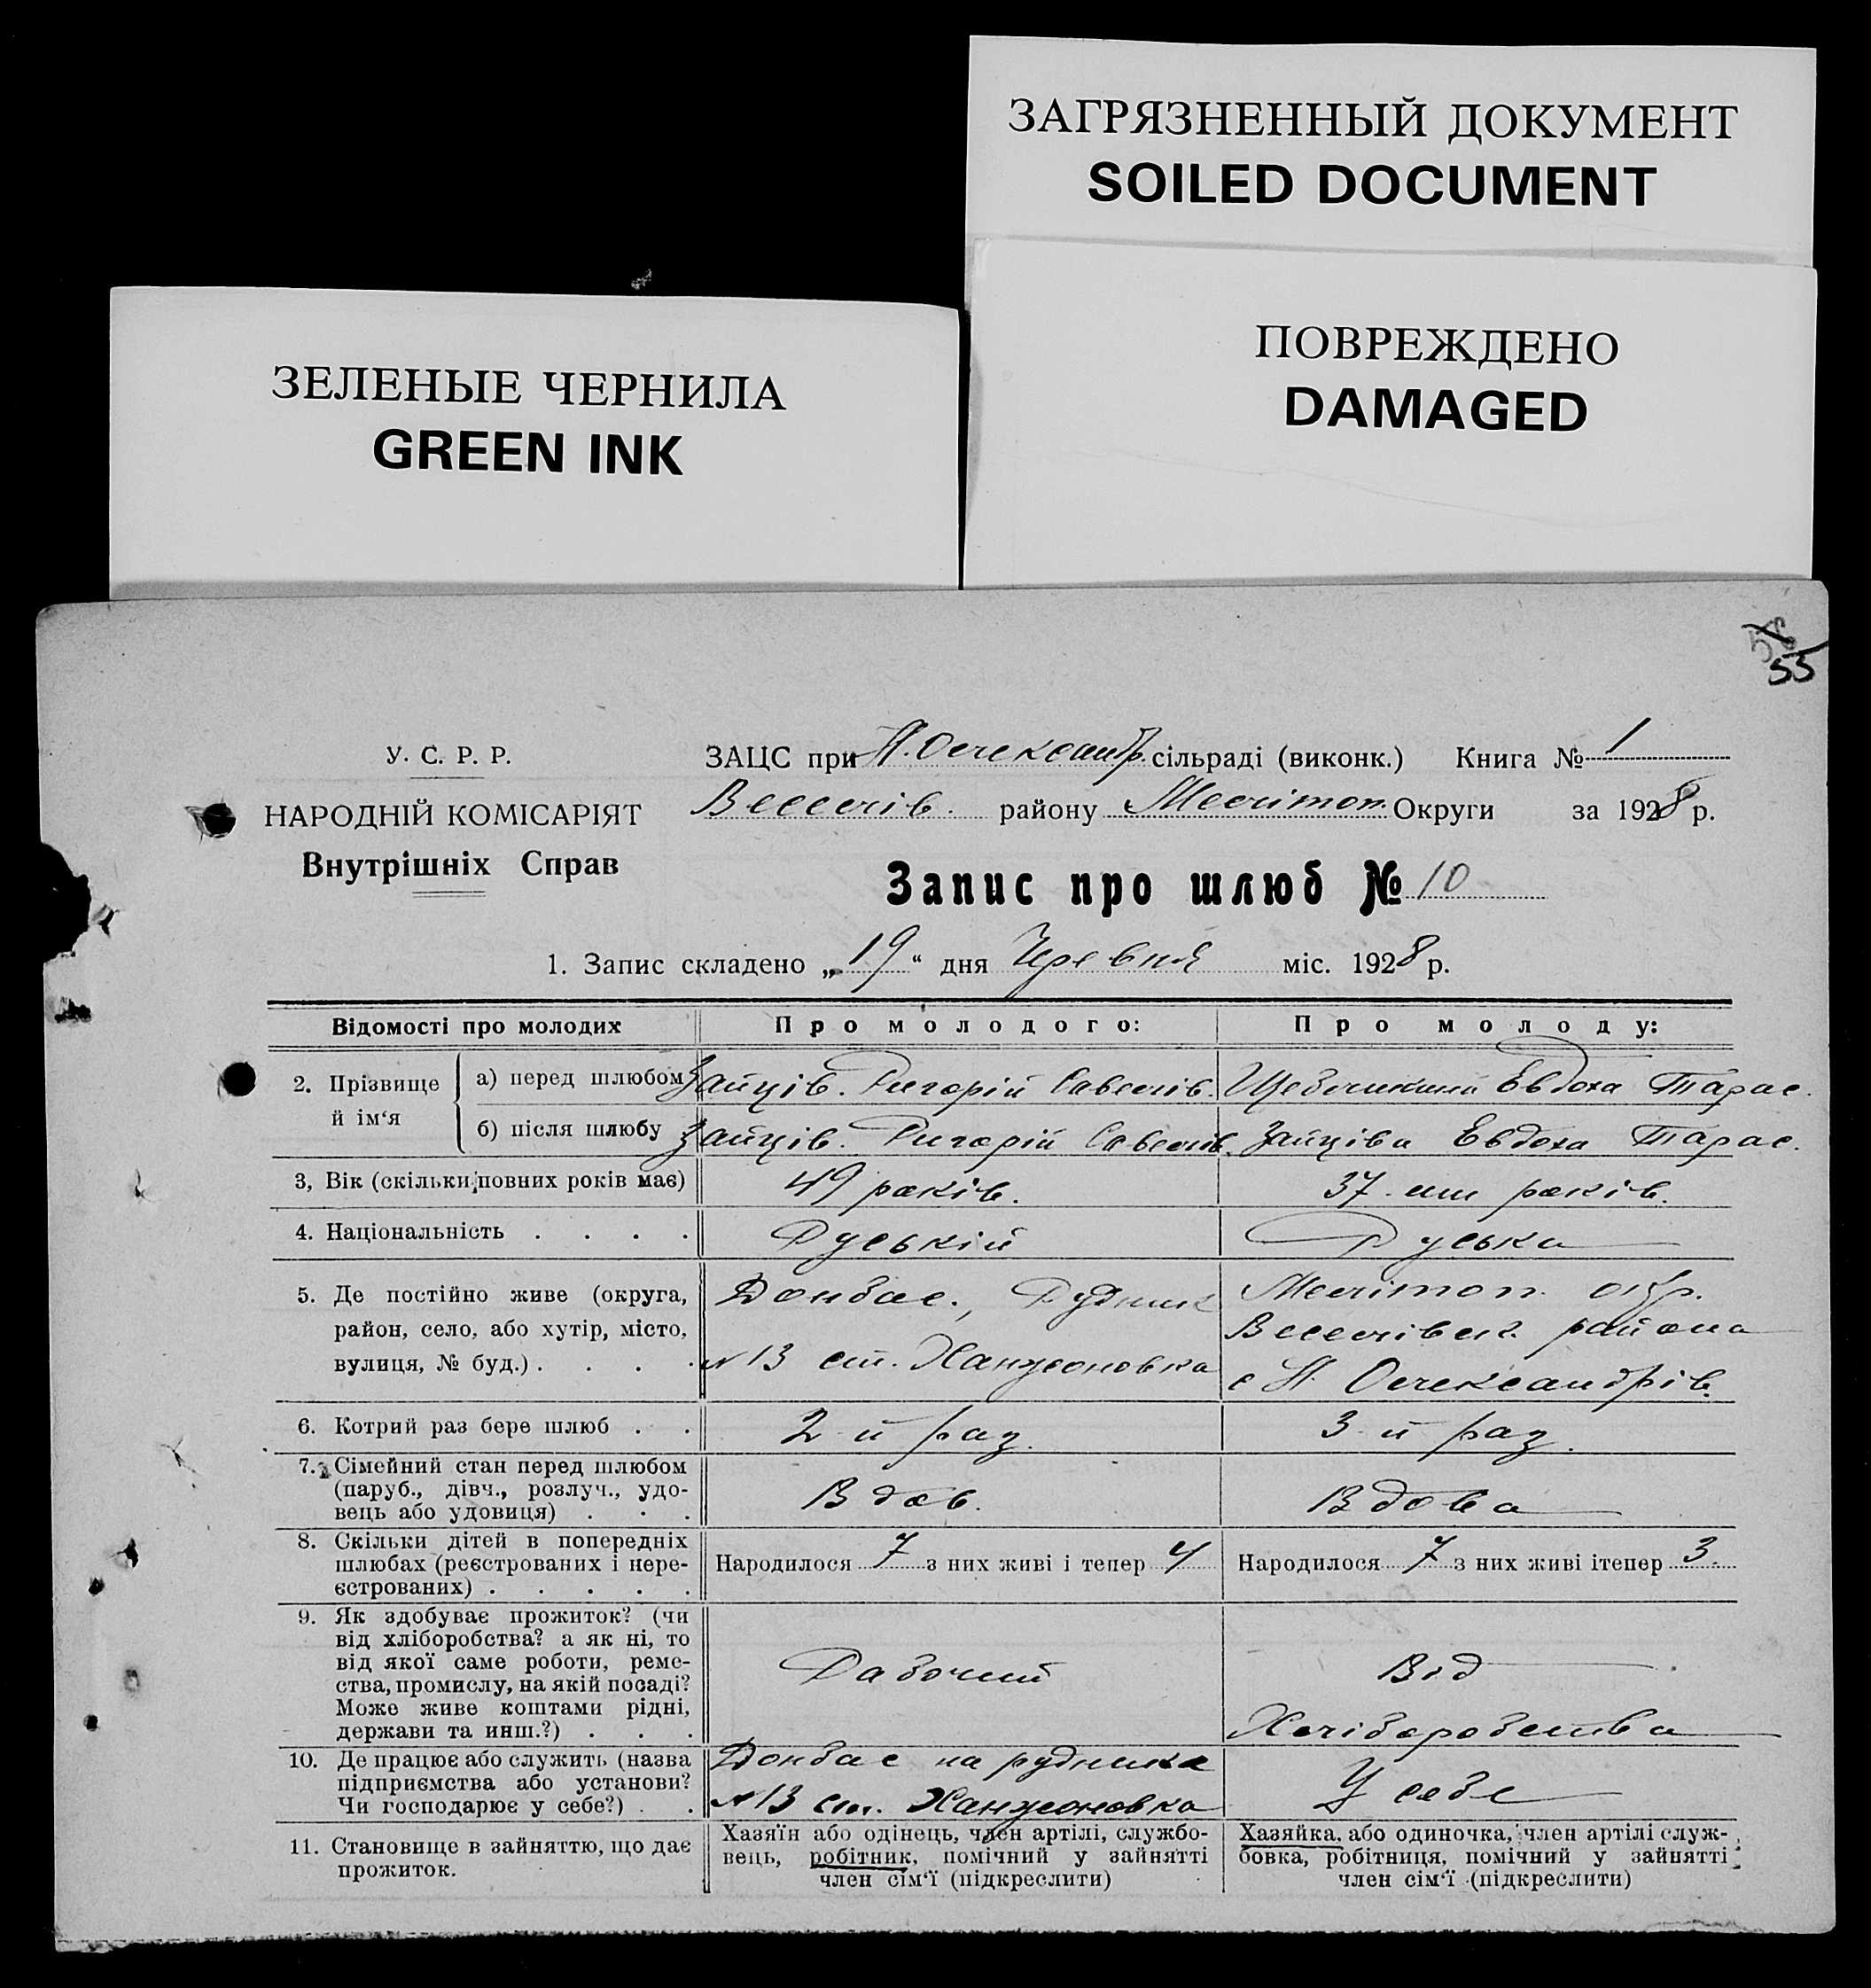 ЗАГРЯЗНЕННЫЙ ДОКУМЕНТ
SOILED DOCUMENT
ПОВРЕЖДЕНО
DAMAGED
ЗЕЛЕНЫЕ ЧЕРНИЛА
GREEN INK
55
У. С. Р. Р.
НАРОДНІЙ КОМІСАРІЯТ
Внутрішніх Справ
ЗАЦС при Н. Олександр. сільраді (виконк.) Книга № 1
Веселів. району Мелітоп. Округи за 1928 р.
Запис про шлюб № 10
1. Запис складено „19“ дня Червня міс. 1928 р.
Відомості про молодих Про молодого: Про молоду:
2. Прізвище й ім‘я
а) перед шлюбом Зайців. Григорій Савелів. Евдоха Тарас.
б) після шлюбу Зайців. Григорій Савелів. Зайціва Евдоха Тарас.
3, Вік (скільки повних років має) 49 років. 37 років.
4. Національність . . . . Руській Руська
5. Де постійно живе (округа, Донбас., Рудник Мелітоп. окр.
район, село, або хутір, місто, Веселівск. района
вулиця, № буд.) . . . . № 13 ст. Ханжоновка с Н. Олександрів.
6. Котрий раз бере шлюб . . 2-й раз. 3-й раз.
7. Сімейний стан перед шлюбом
(паруб., дівч., розлуч., удо- Вдов. Вдова
вець або удовиця) . . .
8. Скільки дітей в попередніх
шлюбах (реєстрованих і нере- Народилося 7 з них живі і тепер 4 Народилося 7 з них живі ітепер 3.
єстрованих) . . . . .
9. Як здобуває прожиток? (чи
від хліборобства? а як ні, то
від якої саме роботи, реме- Рабочий Від
ства, промислу, на якій посаді?
Може живе коштами рідні, Хліборобства
держави та инш.?) . . .
10. Де працює або служить (назва Донбас на руднике
підприємства або установи? У себе
Чи господарює у себе?) . . № 13 ст. Ханжоновка
11. Становище в зайняттю, що дає
прожиток.
Хазяїн або одінець, член артілі, службо-
вець, робітник, помічний у зайнятті
член сім‘ї (підкреслити)
Хазяйка, або одиночка, член артілі служ-
бовка, робітниця, помічний у зайнятті
член сім‘ї (підкреслити)